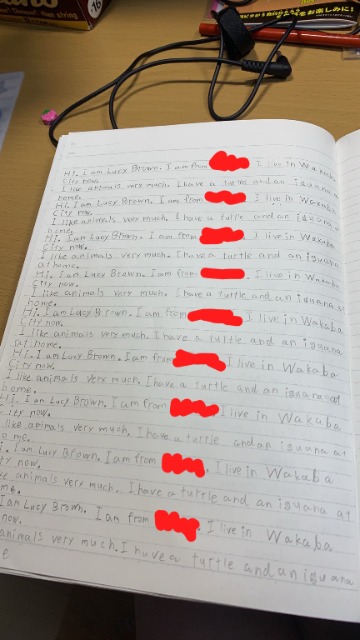 string 16
をお楽しみに!
Hi. I am Lucy Brown. I am from I live in Wakaba
City now.
I like animals very much. I have a turtle and an iguana
home.
Hi. I am Lucy Brown. I am from I live in Wakaba
City now.
I like animals very much. I have a turtle and an iguana
home.
Hi. I am Lucy Brown. I am from I live in Wakaba
City now.
I like animals very much. I have a turtle and an iguana
at home.
Hi. I am Lucy Brown. I am from I live in Wakaba
City now.
I like animals very much. I have a turtle and an iguana at
home.
Hi. I am Lucy Brown. I am from I live in Wakaba
City now.
I like animals very much. I have a turtle and an iguana
at home.
Hi. I am Lucy Brown. I am from I live in Wakaba
City now.
I like animals very much. I have a turtle and an iguana at
home.
Hi. I am Lucy Brown. I am from I live in Wakaba
City now.
like animals very much. I have a turtle and an iguana at
ome.
. I am Lucy Brown. I am from . I live in Wakaba
ty now.
e animals very much. I have a turtle and an iguana at
me.
I am Lucy Brown. I am from . I live in Wakaba
now.
animals very much. I have a turtle and an iguana
e